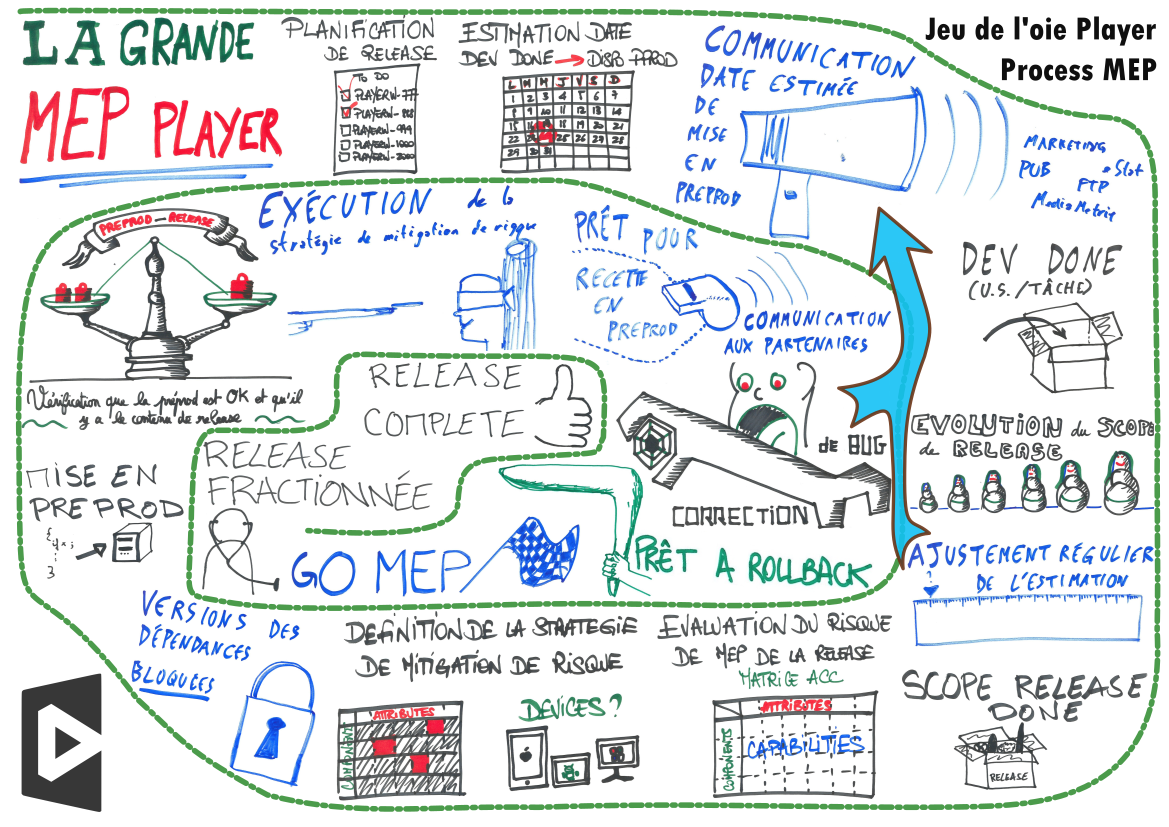 LA GRANDE
MEP PLAYER
PLANIFICATION
DE RELEASE
TO DO
PLAYERW-777
PLAYERW-888
PLAYERW-999
PLAYERW-1000
PLAYERW-2000
ESTIMATION DATE
DEV DONE → DISPO PPROD
L M M J V S D
1 2 3 4 5 6 7
8 9 10 11 12 13 14
15 16 17 18 19 20 21
22 23 24 25 26 27 28
29 30 31
COMMUNICATION
DATE ESTIMÉE
DE
MISE
EN
PREPROD
Jeu de l'oie Player
Process MEP
MARKETING
PUB
FTP
MediaMetrie
DEV DONE
(U.S./TÂCHE)
EVOLUTION du SCOPE
de RELEASE
AJUSTEMENT RÉGULIER
DE L'ESTIMATION
SCOPE RELEASE
DONE
RELEASE
EVALUATION DU RISQUE
DE MEP DE LA RELEASE
MATRICE ACC
ATTRIBUTES
COMPONENTS
CAPABILITIES
DEFINITION DE LA STRATEGIE
DE MITIGATION DE RISQUE
ATTRIBUTES
COMPONENTS
DEVICES ?
VERSIONS DES
DÉPENDANCES
BLOQUÉES
MISE EN
PREPROD
PREPROD - RELEASE
Vérification que la préprod est OK et qu'il
y a le contenu de release
EXÉCUTION de la
stratégie de mitigation de risque
PRÊT POUR
RECETTE
EN
PREPROD
COMMUNICATION
AUX PARTENAIRES
de BUG
CORRECTION
PRÊT A ROLLBACK
GO MEP
RELEASE
FRACTIONNÉE
RELEASE
COMPLETE